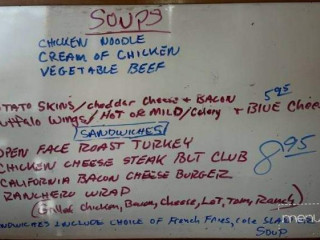 SOUPS
CHICKEN NOODLE
CREAM OF CHICKEN
VEGETABLE BEEF
5.95
TATO SKINS/chedder Cheese + BACON
uffalo Wings/HOT OR MILD/Celery + BLUE Chees
SANDWICHES
OPEN FACE ROAST TURKEY
8.95
CHICKEN CHEESE STEAK BLT CLUB
CALIFORNIA BACON CHEESE BURGER
RANCHERO WRAP
(Grilled Chicken, Bacon, Cheese, Let, Tom, Ranch)
NDWICHES INCLUDE CHOICE OF French Fries, Cole SLAW OR
SOUP
menu